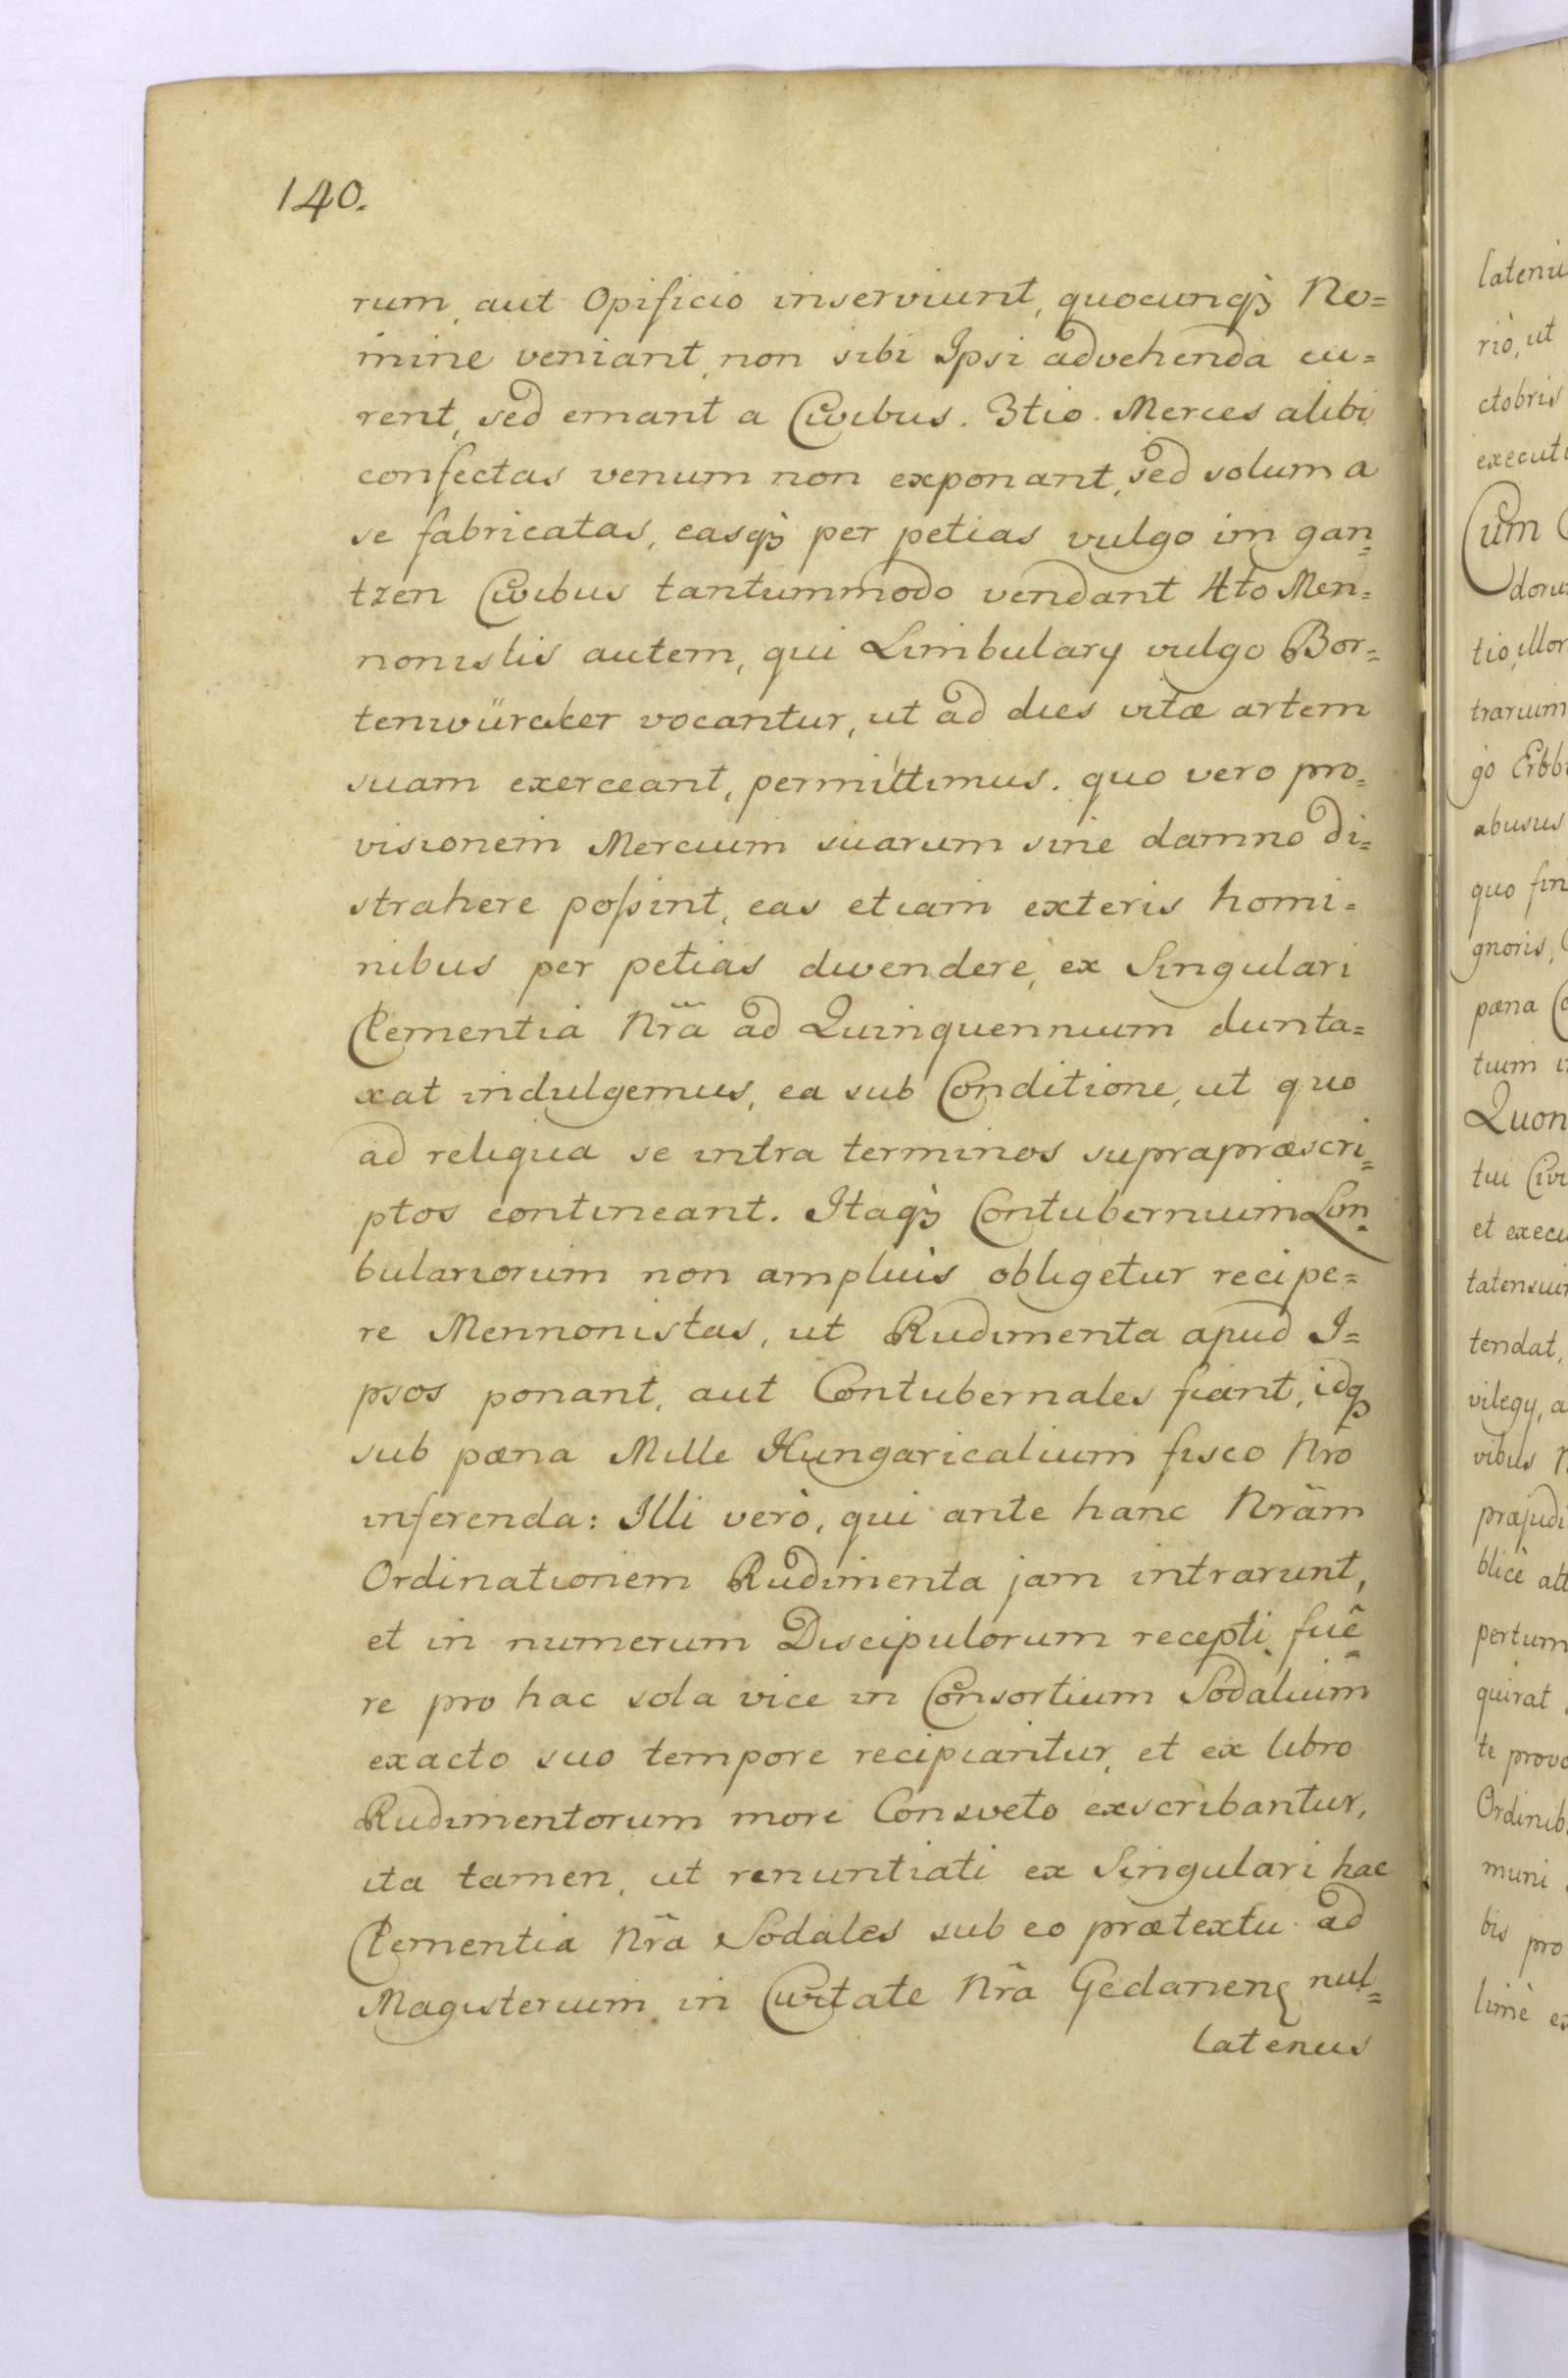 140.
rum, aut Opificio inserviunt, quocunqꝫ No=
mine veniant, non sibi Ipsi advehenda cu=
rent, sed emant a Civibus. 3tio. Merces alibi
confectas venum non exponant, sed solum a
se fabricatas, easqꝫ per petias vulgo im gan=
tzen Civibus tantummodo vendant 4to Men=
nonistis autem, qui Limbularij vulgo Bor=
tenwürcker vocantur, ut ad dies vitæ artem
suam exerceant, permittimus. quo vero pro=
visionem Mercium suarum sine damno di=
strahere poßint, eas etiam exteris homi=
nibus per petias divendere, ex Singulari
Clementia Nrã ad Quinquennium dunta=
xat indulgemus, ea sub Conditione, ut quo
ad reliqua se intra terminos suprapræscri=
ptos contineant. Itaqꝫ Contubernium Lim=
bulariorum non ampliùs obligetur recipe=
re Mennonistas, ut Rudimenta apud I=
psos ponant, aut Contubernales fiant, idqꝫ
sub pæna Mille Hungaricalium fisco Nrõ
inferenda: Illi verò, qui ante hanc Nrãm
Ordinationem Rudimenta jam intrarunt,
et in numerum Discipulorum recepti fuê=
re pro hac sola vice in Consortium Sodalium
exacto suo tempore recipiantur, et ex libro
Rudimentorum more Consveto exscribantur,
ita tamen, ut renuntiati ex Singulari hac
Clementia Nrã Sodales sub eo prætextu ad
Magisterium in Civitate Nrã Gedanenς nul=
latenus
latenu
rio, ut
ctobris
execut
Cum
doru
tio, illor
trarium
go Erb
abusus
quo fin
gnoris,
pæna
tium
Quon
tui Civi
et execu
tatensui
tendat,
vilegij, a
vibus
præjudi
blicè att
pertum
quirat
te provo
Ordinib
muni
bis pro
limè